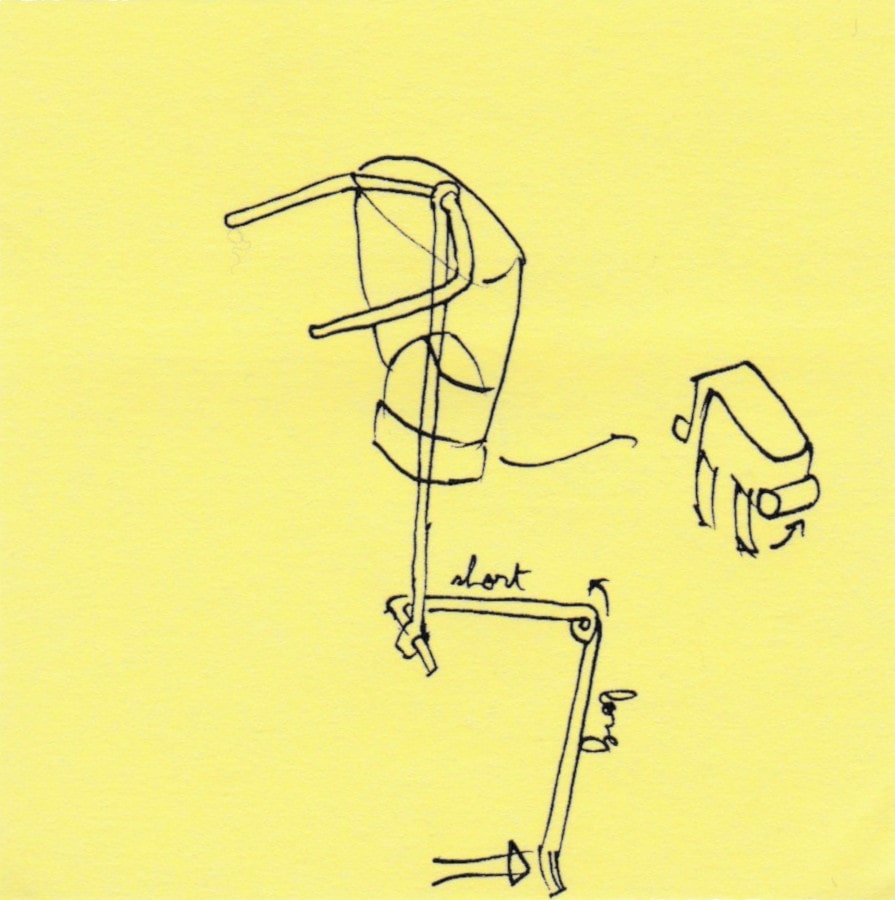 short
long